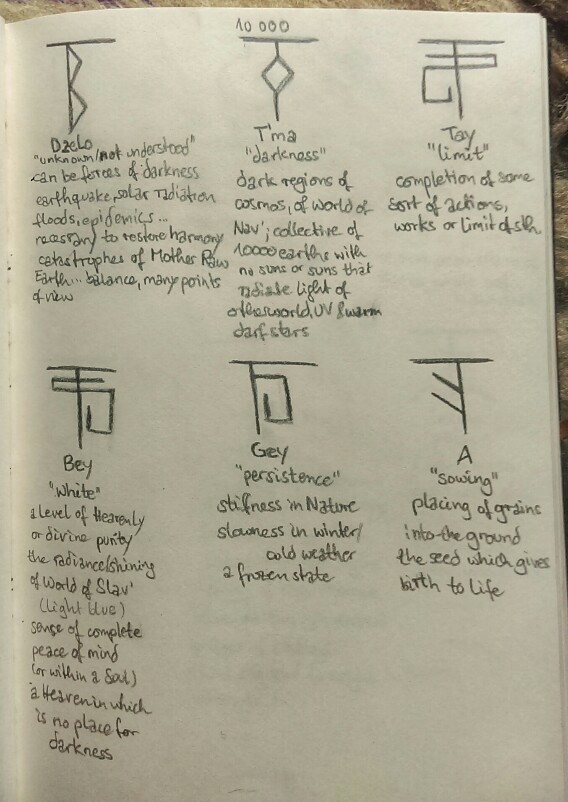 10 000
Dzelo
"unknown/not understood"
can be forces of darkness
earthquake, solar radiation
floods, epidemics...
necessary to restore harmony
catastrophes of Mother Raw
Earth... balance, many points
of view
T'ma
"darkness"
dark regions of
cosmos, of world of
Nav'; collective of
10000 earths with
no suns or suns that
radiate light of
otherworld, UV & warm
darf stars
Tay
"limit"
completion of some
sort of actions,
works or limit of sth.
Bey
"white"
a level of Heavenly
or divine purity
the radiance/shining
of World of Slav'
(light blue)
sense of complete
peace of mind
(or within a Soul)
a Heaven in which
is no place for
darkness
Gey
"persistence"
stifness in Nature
slowness in winter/
cold weather
a frozen state
A
"sowing"
placing of grains
into the ground
the seed which gives
birth to life